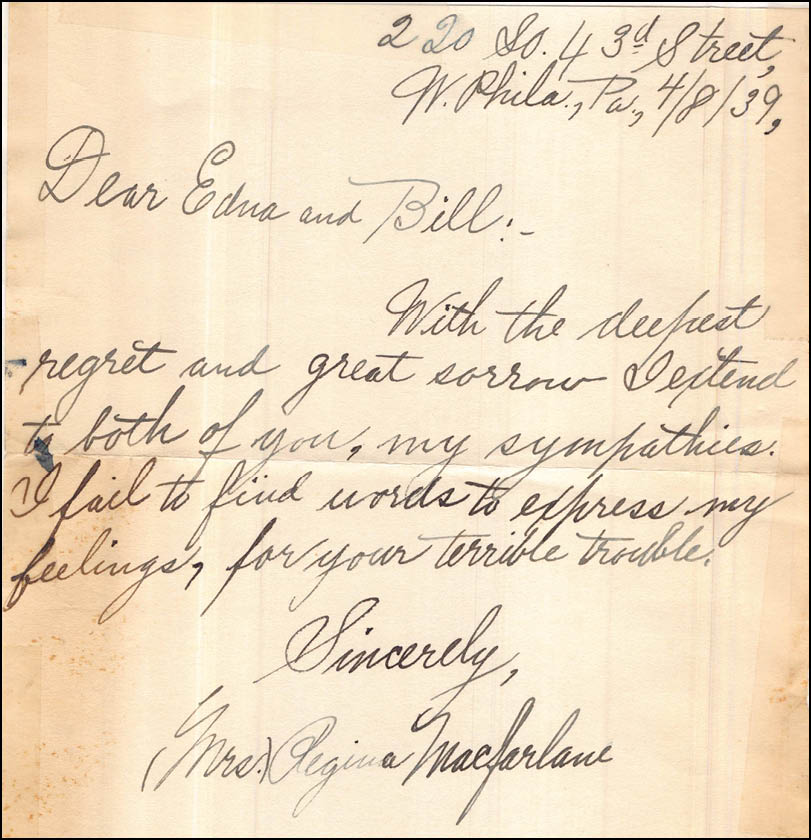 220 So. 43d Street,
W. Phila., Pa., 4/8/39,
Dear Edna and Bill:-
With the deepest
regret and great sorrow I extend
to both of you, my sympathies.
I fail to find words to express my
feelings, for your terrible trouble.
Sincerely,
(Mrs.) Regina Macfarlane